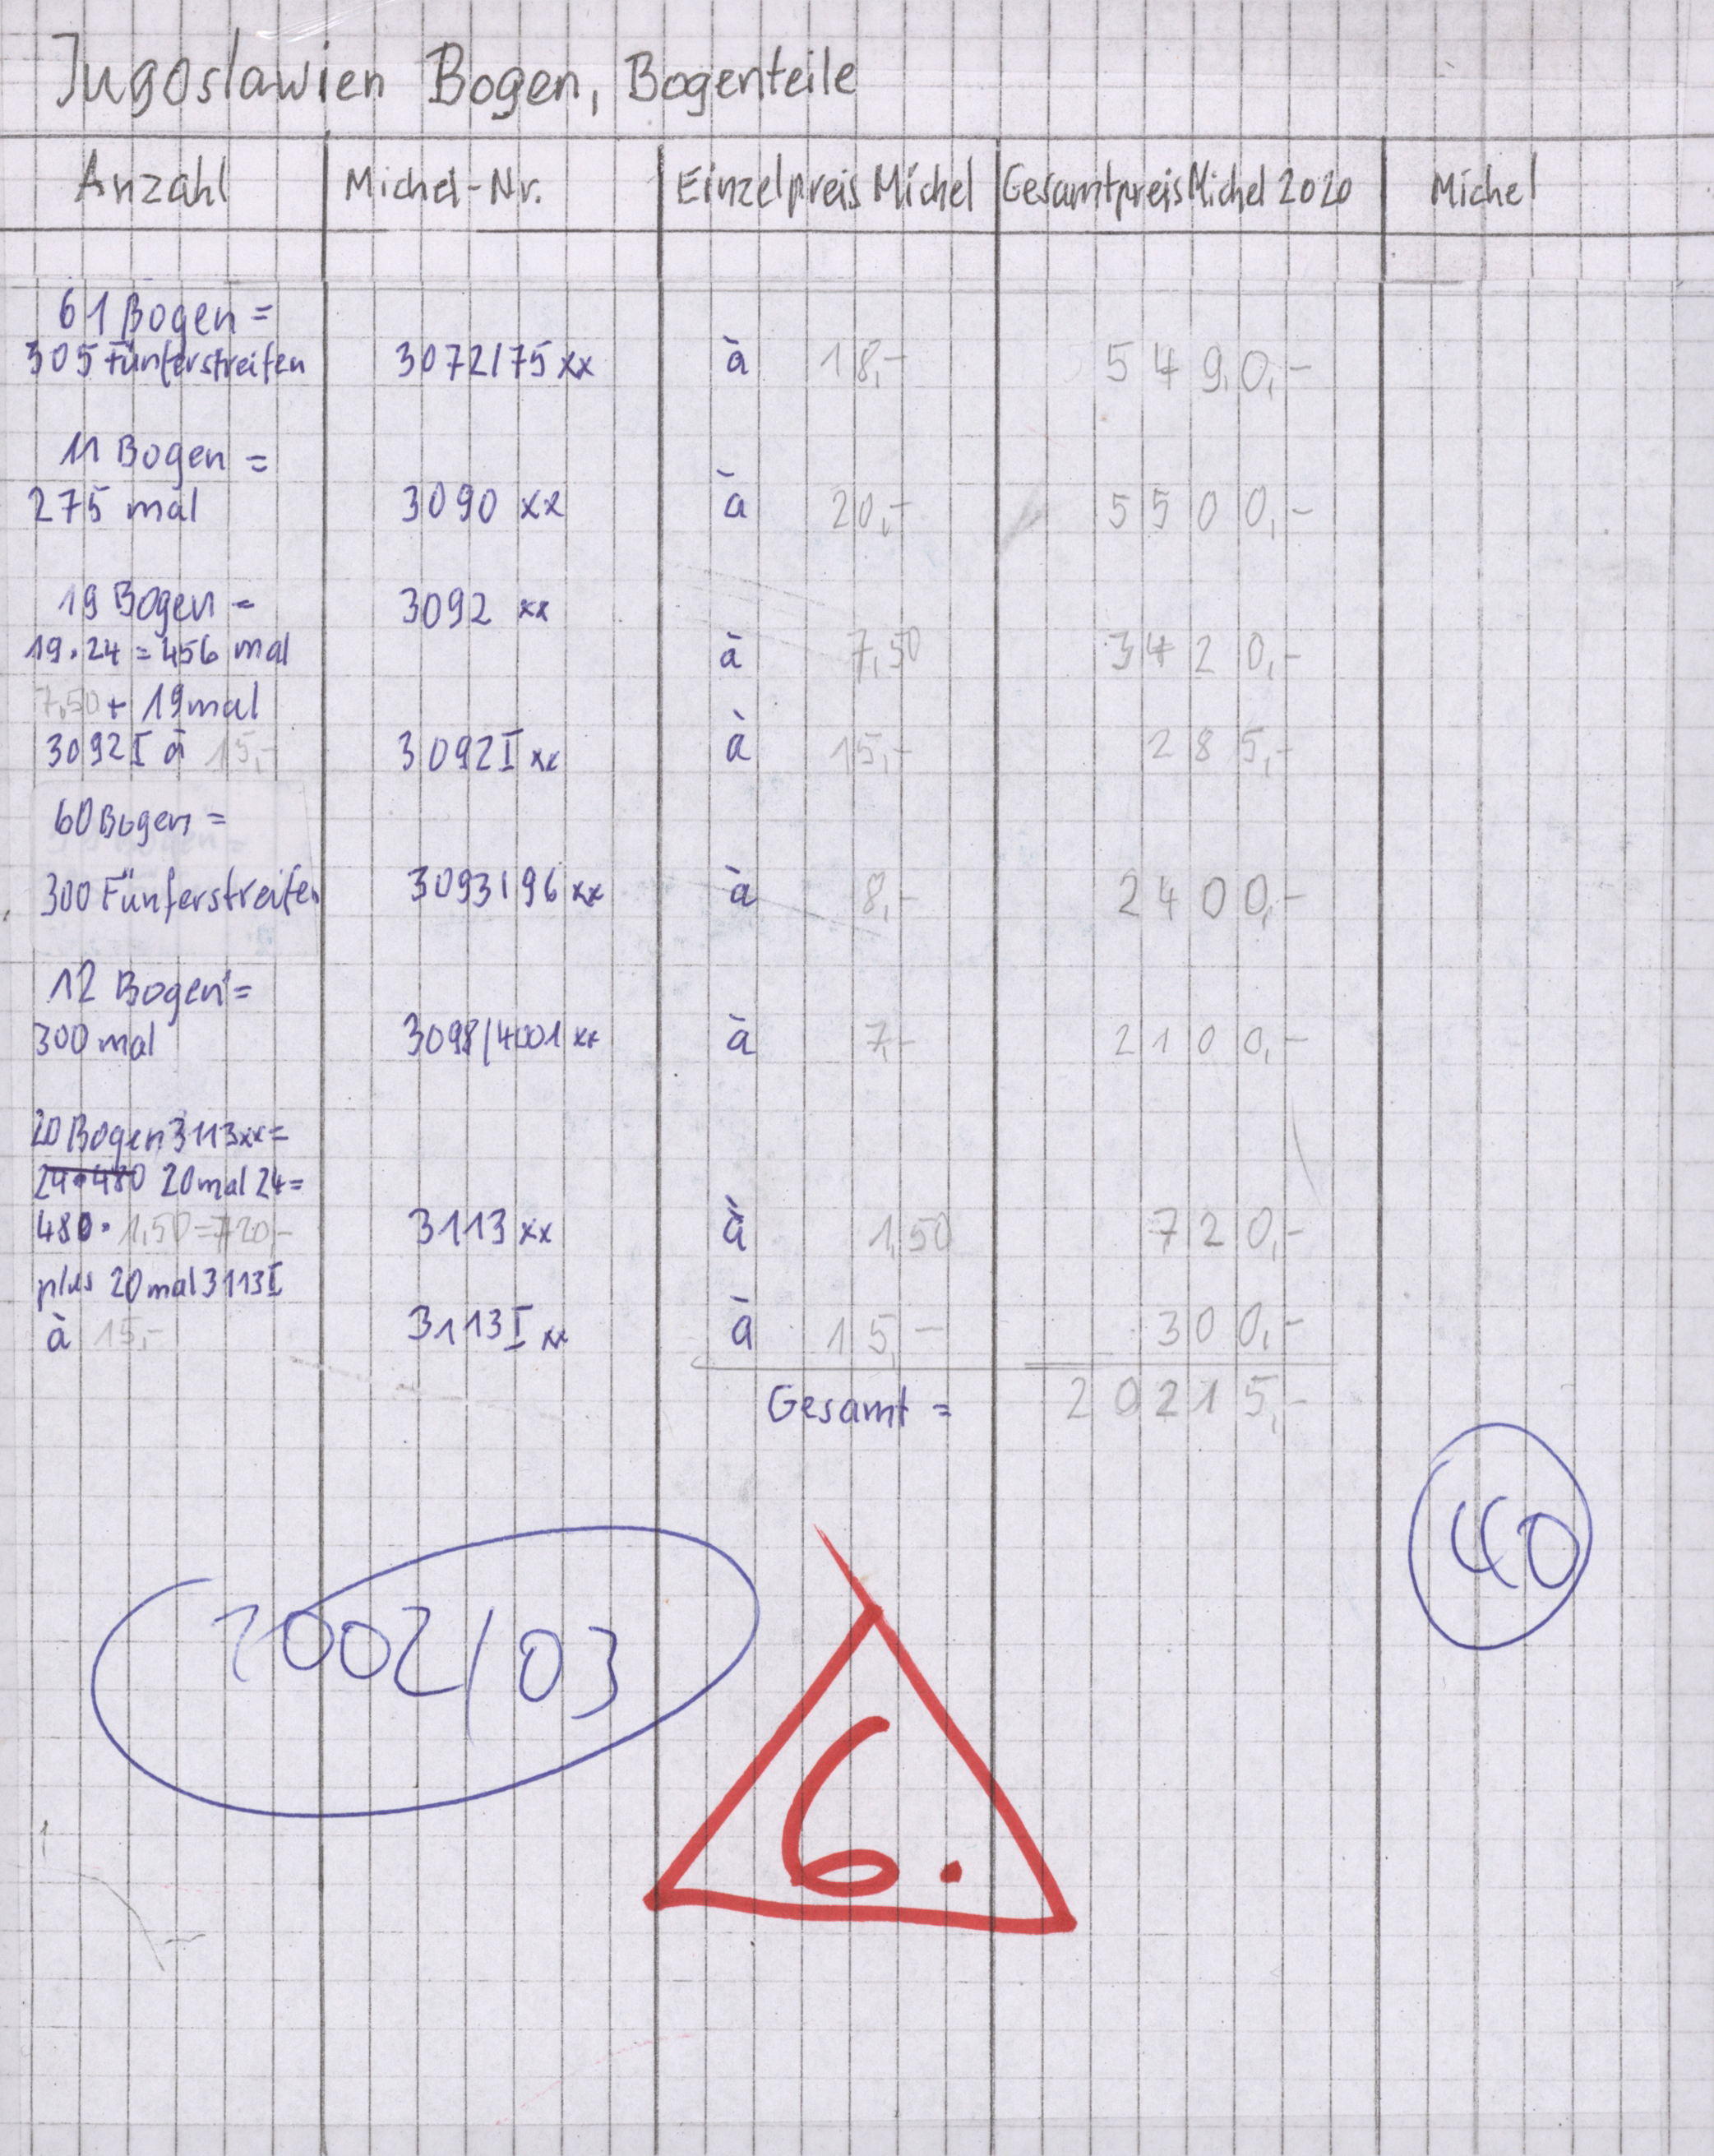 Jugoslawien Bogen, Bogenteile
Anzahl Michel-Nr. Einzelpreis Michel Gesamtpreis Michel 2020 Michel
61 Bogen =
305 Fünferstreifen 3072/75 xx à 18,- 5490,-
11 Bogen =
275 mal 3090 xx à 20,- 5500,-
19 Bogen = 3092 xx
19·24=456 mal à 7,50 3420,-
7,50 + 19mal
3092I à 15,- 3092I xx à 15,- 285,-
60 Bogen =
300 Fünferstreifen 3093/96 xx à 8,- 2400,-
12 Bogen =
300 mal 3098/4001 xx à 7,- 2100,-
20 Bogen 3113xx=
24·480 20mal 24=
480· 1,50=720,- 3113 xx à 1,50 720,-
plus 20mal 3113I
à 15,- 3113I xx à 15,- 300,-
Gesamt = 20215,-
40
2002/03
6.